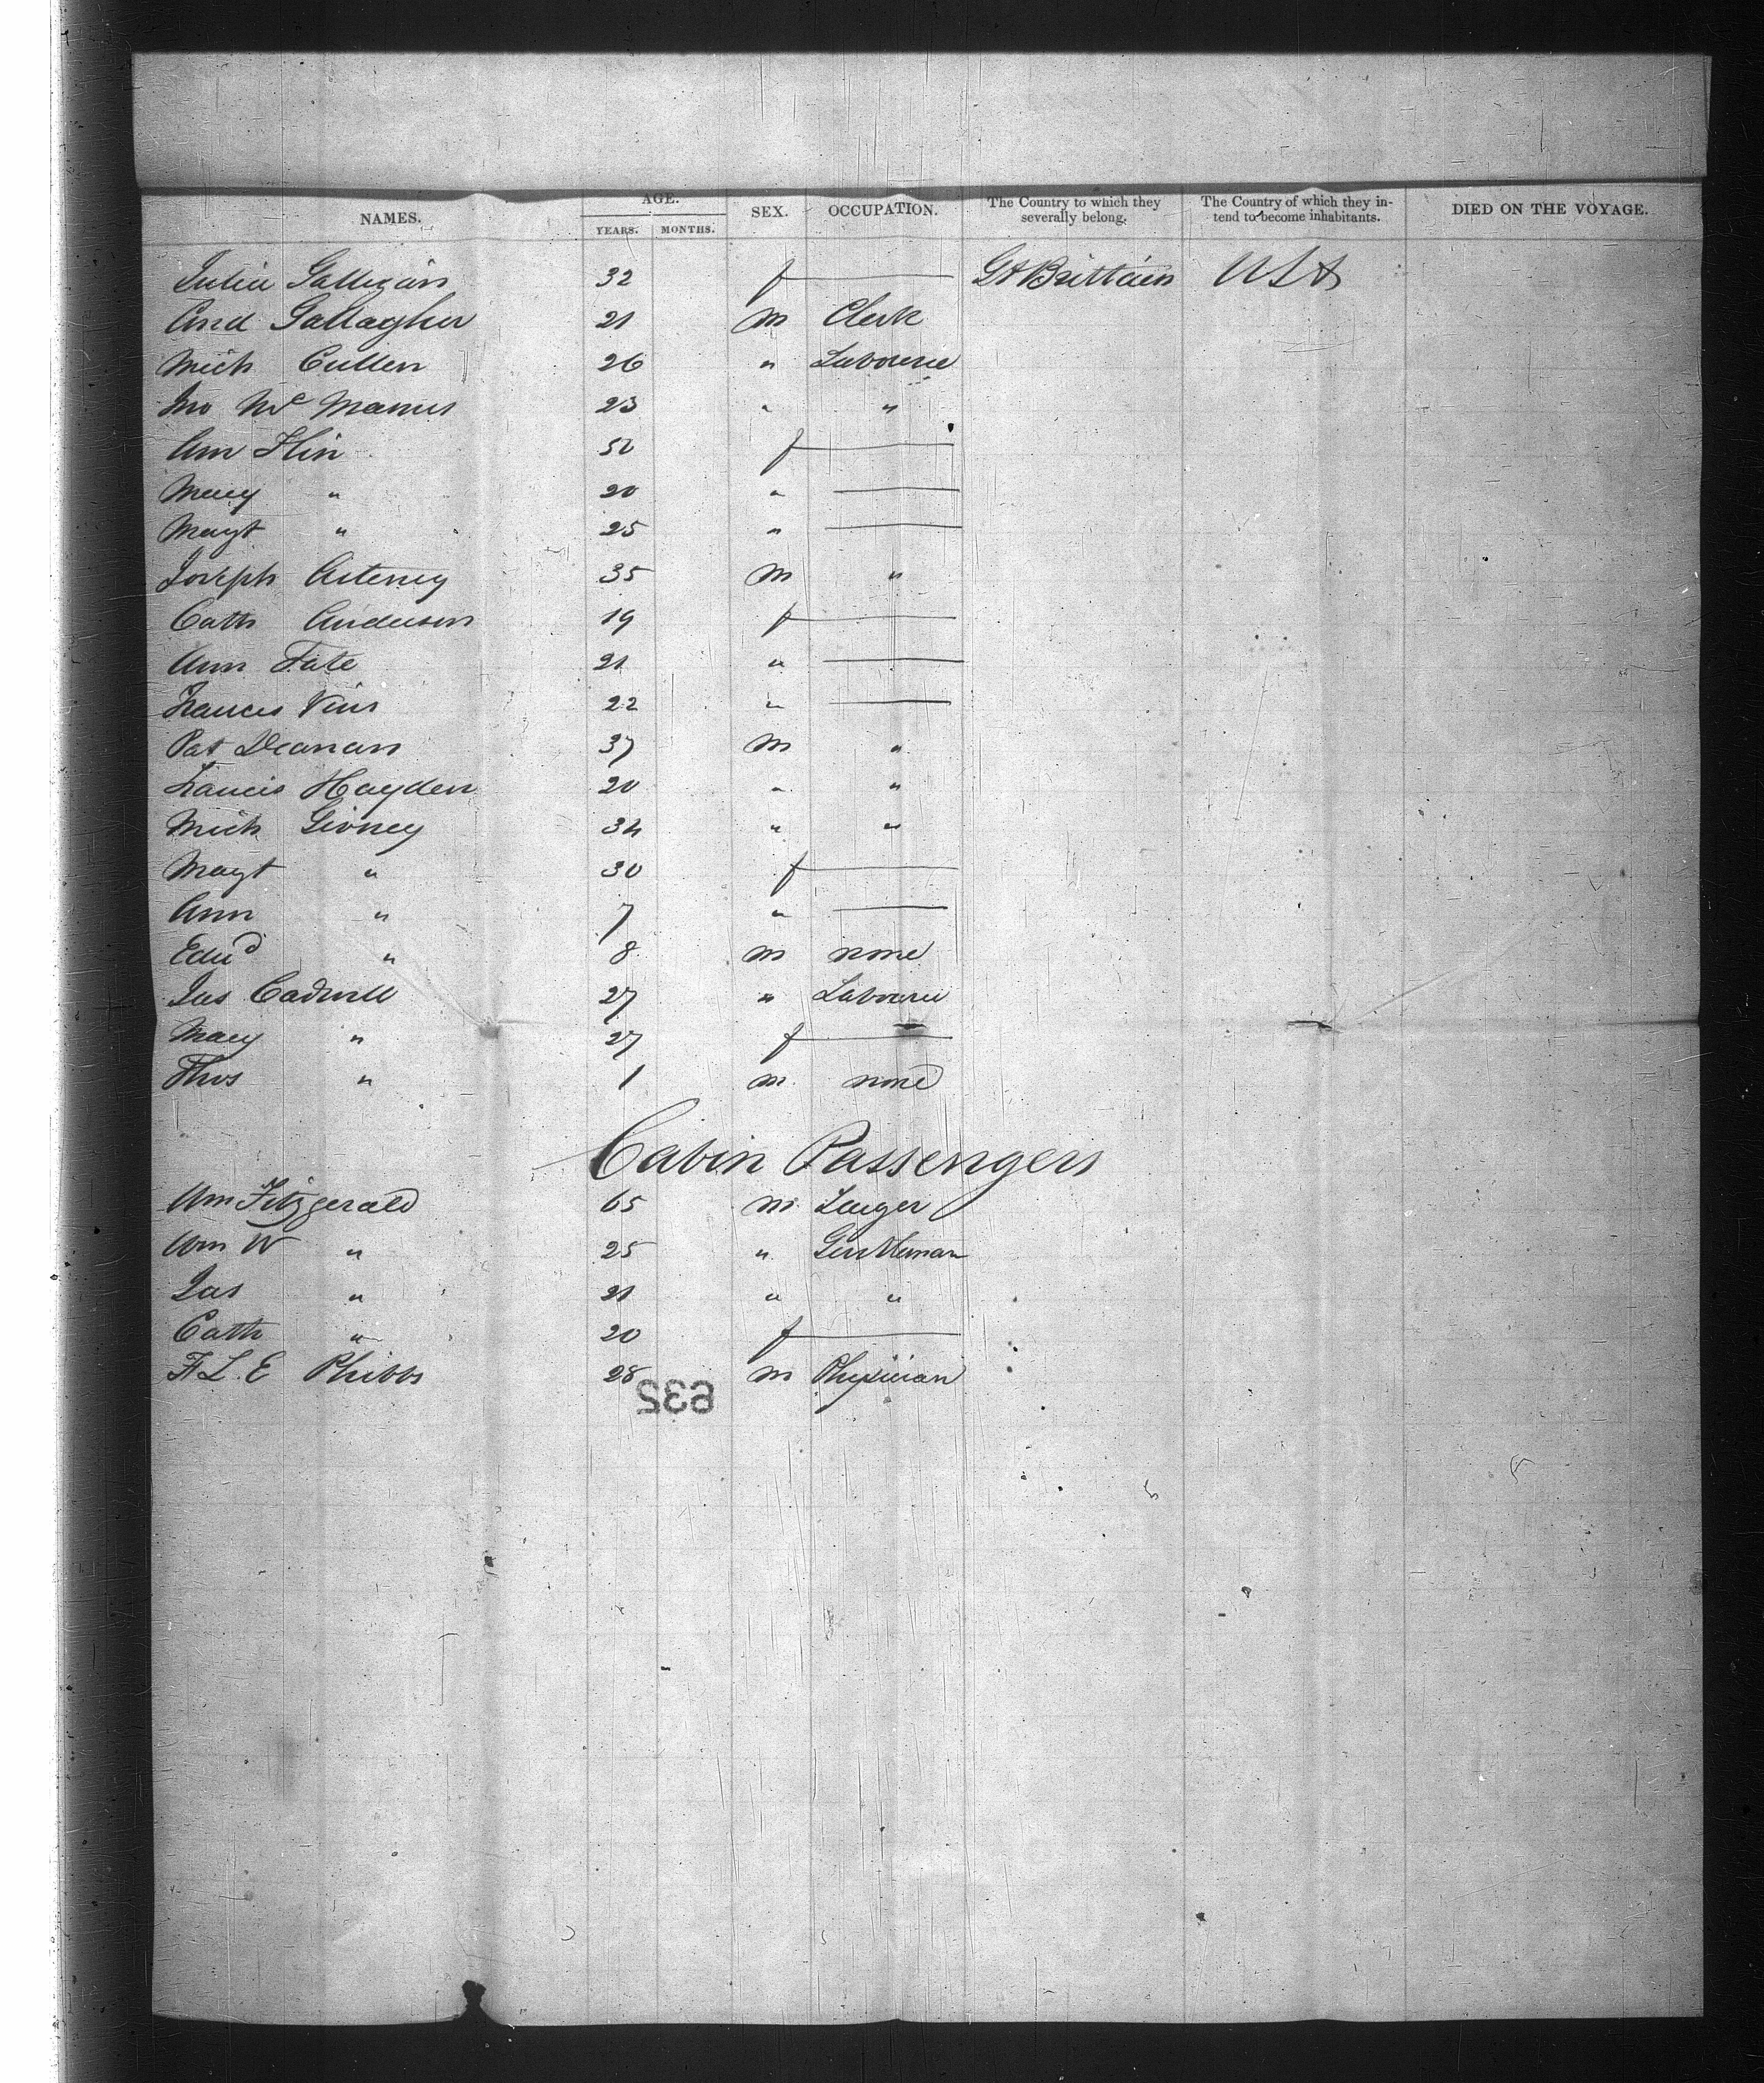 NAMES. AGE. YEARS. MONTHS. SEX. OCCUPATION. The Country to which they severally belong. The Country of which they intend to become inhabitants. DIED ON THE VOYAGE.
Julia Galligan 32 f — Gt Brittain USA
And Gallagher 21 m Clerk
Mich Cullen 26 " Labourer
Jno Mc Manus 23 " "
Ann Flin 50 f —
Mary " 20 " —
Magt " 25 " —
Joseph 35 m "
Cath Anderson 19 f —
Ann Tate 21 " —
Frances 22 " —
Pat 37 m "
Francis Hayden 20 " "
Mich Givney 34 " "
Magt " 30 f —
Ann " 7 " —
Edwd " 8 m none
Jas Cadwell 27 " Labourer
Mary " 27 f —
Thos " 1 m none
Cabin Passengers
Wm Fitzgerald 65 m
Wm W " 25 " Gentleman
Jas " 21 " "
Cath " 20 f —
L. E Phibbs 28 m Physician
632